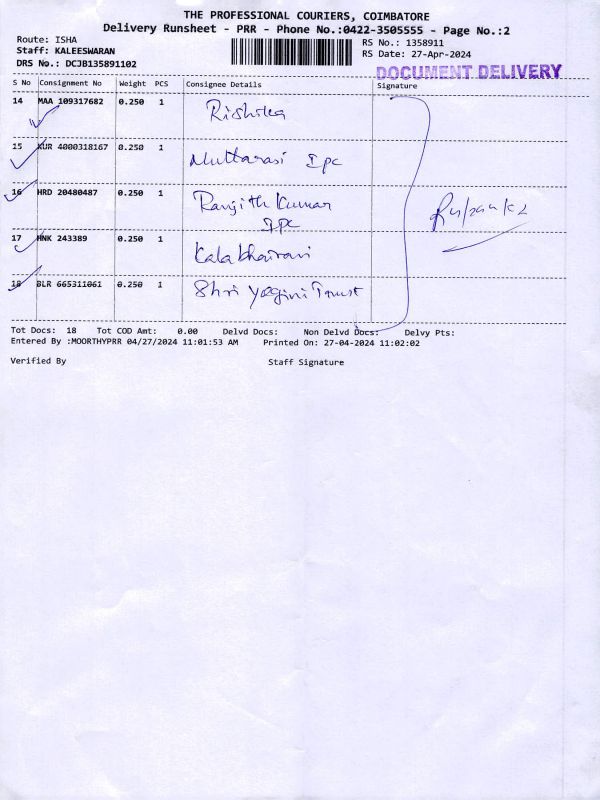 THE PROFESSIONAL COURIERS, COIMBATORE
Delivery Runsheet - PRR - Phone No.:0422-3505555 - Page No.:2
Route: ISHA
Staff: KALEESWARAN
DRS No.: DCJB135891102
RS No.: 1358911
RS Date: 27-Apr-2024
DOCUMENT DELIVERY
S No Consignment No Weight PCS Consignee Details Signature
14 MAA 109317682 0.250 1 Rishika
15 KUR 4000318167 0.250 1 Muttarasi Ipc
16 HRD 20480487 0.250 1 Ranjith Kumar
Ipc
17 HNK 243389 0.250 1 Kala bhairavi
18 BLR 665311061 0.250 1 Shri Yogini Trust
Tot Docs: 18 Tot COD Amt: 0.00 Delvd Docs: Non Delvd Docs: Delvy Pts:
Entered By :MOORTHYPRR 04/27/2024 11:01:53 AM Printed On: 27-04-2024 11:02:02
Verified By Staff Signature